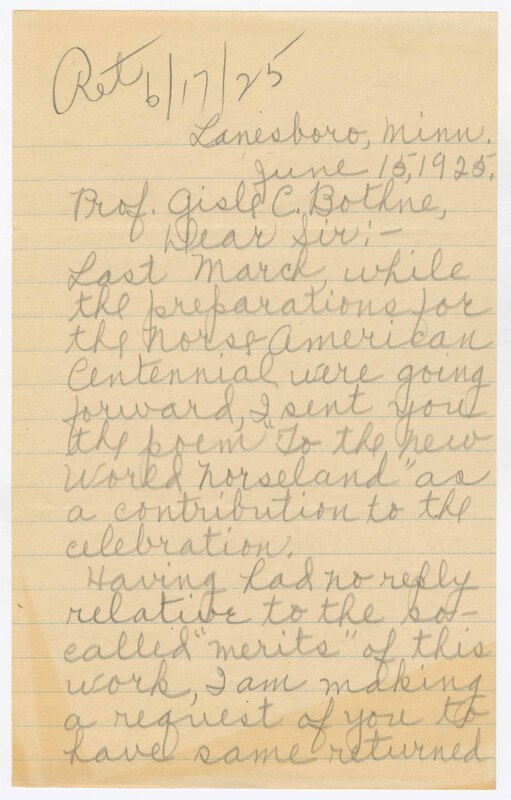 Ret 6/17/25
Lanesboro, Minn.
June 15, 1925.
Prof. Gisle C. Bothne,
Dear Sir:-
Last March, while
the preparations for
the Norse-American
Centennial were going
forward, I sent you
the poem "To the New
World Norseland" as
a contribution to the
celebration.
Having had no reply
relative to the so-
called "merits" of this
work, I am making
a request of you to
have same returned